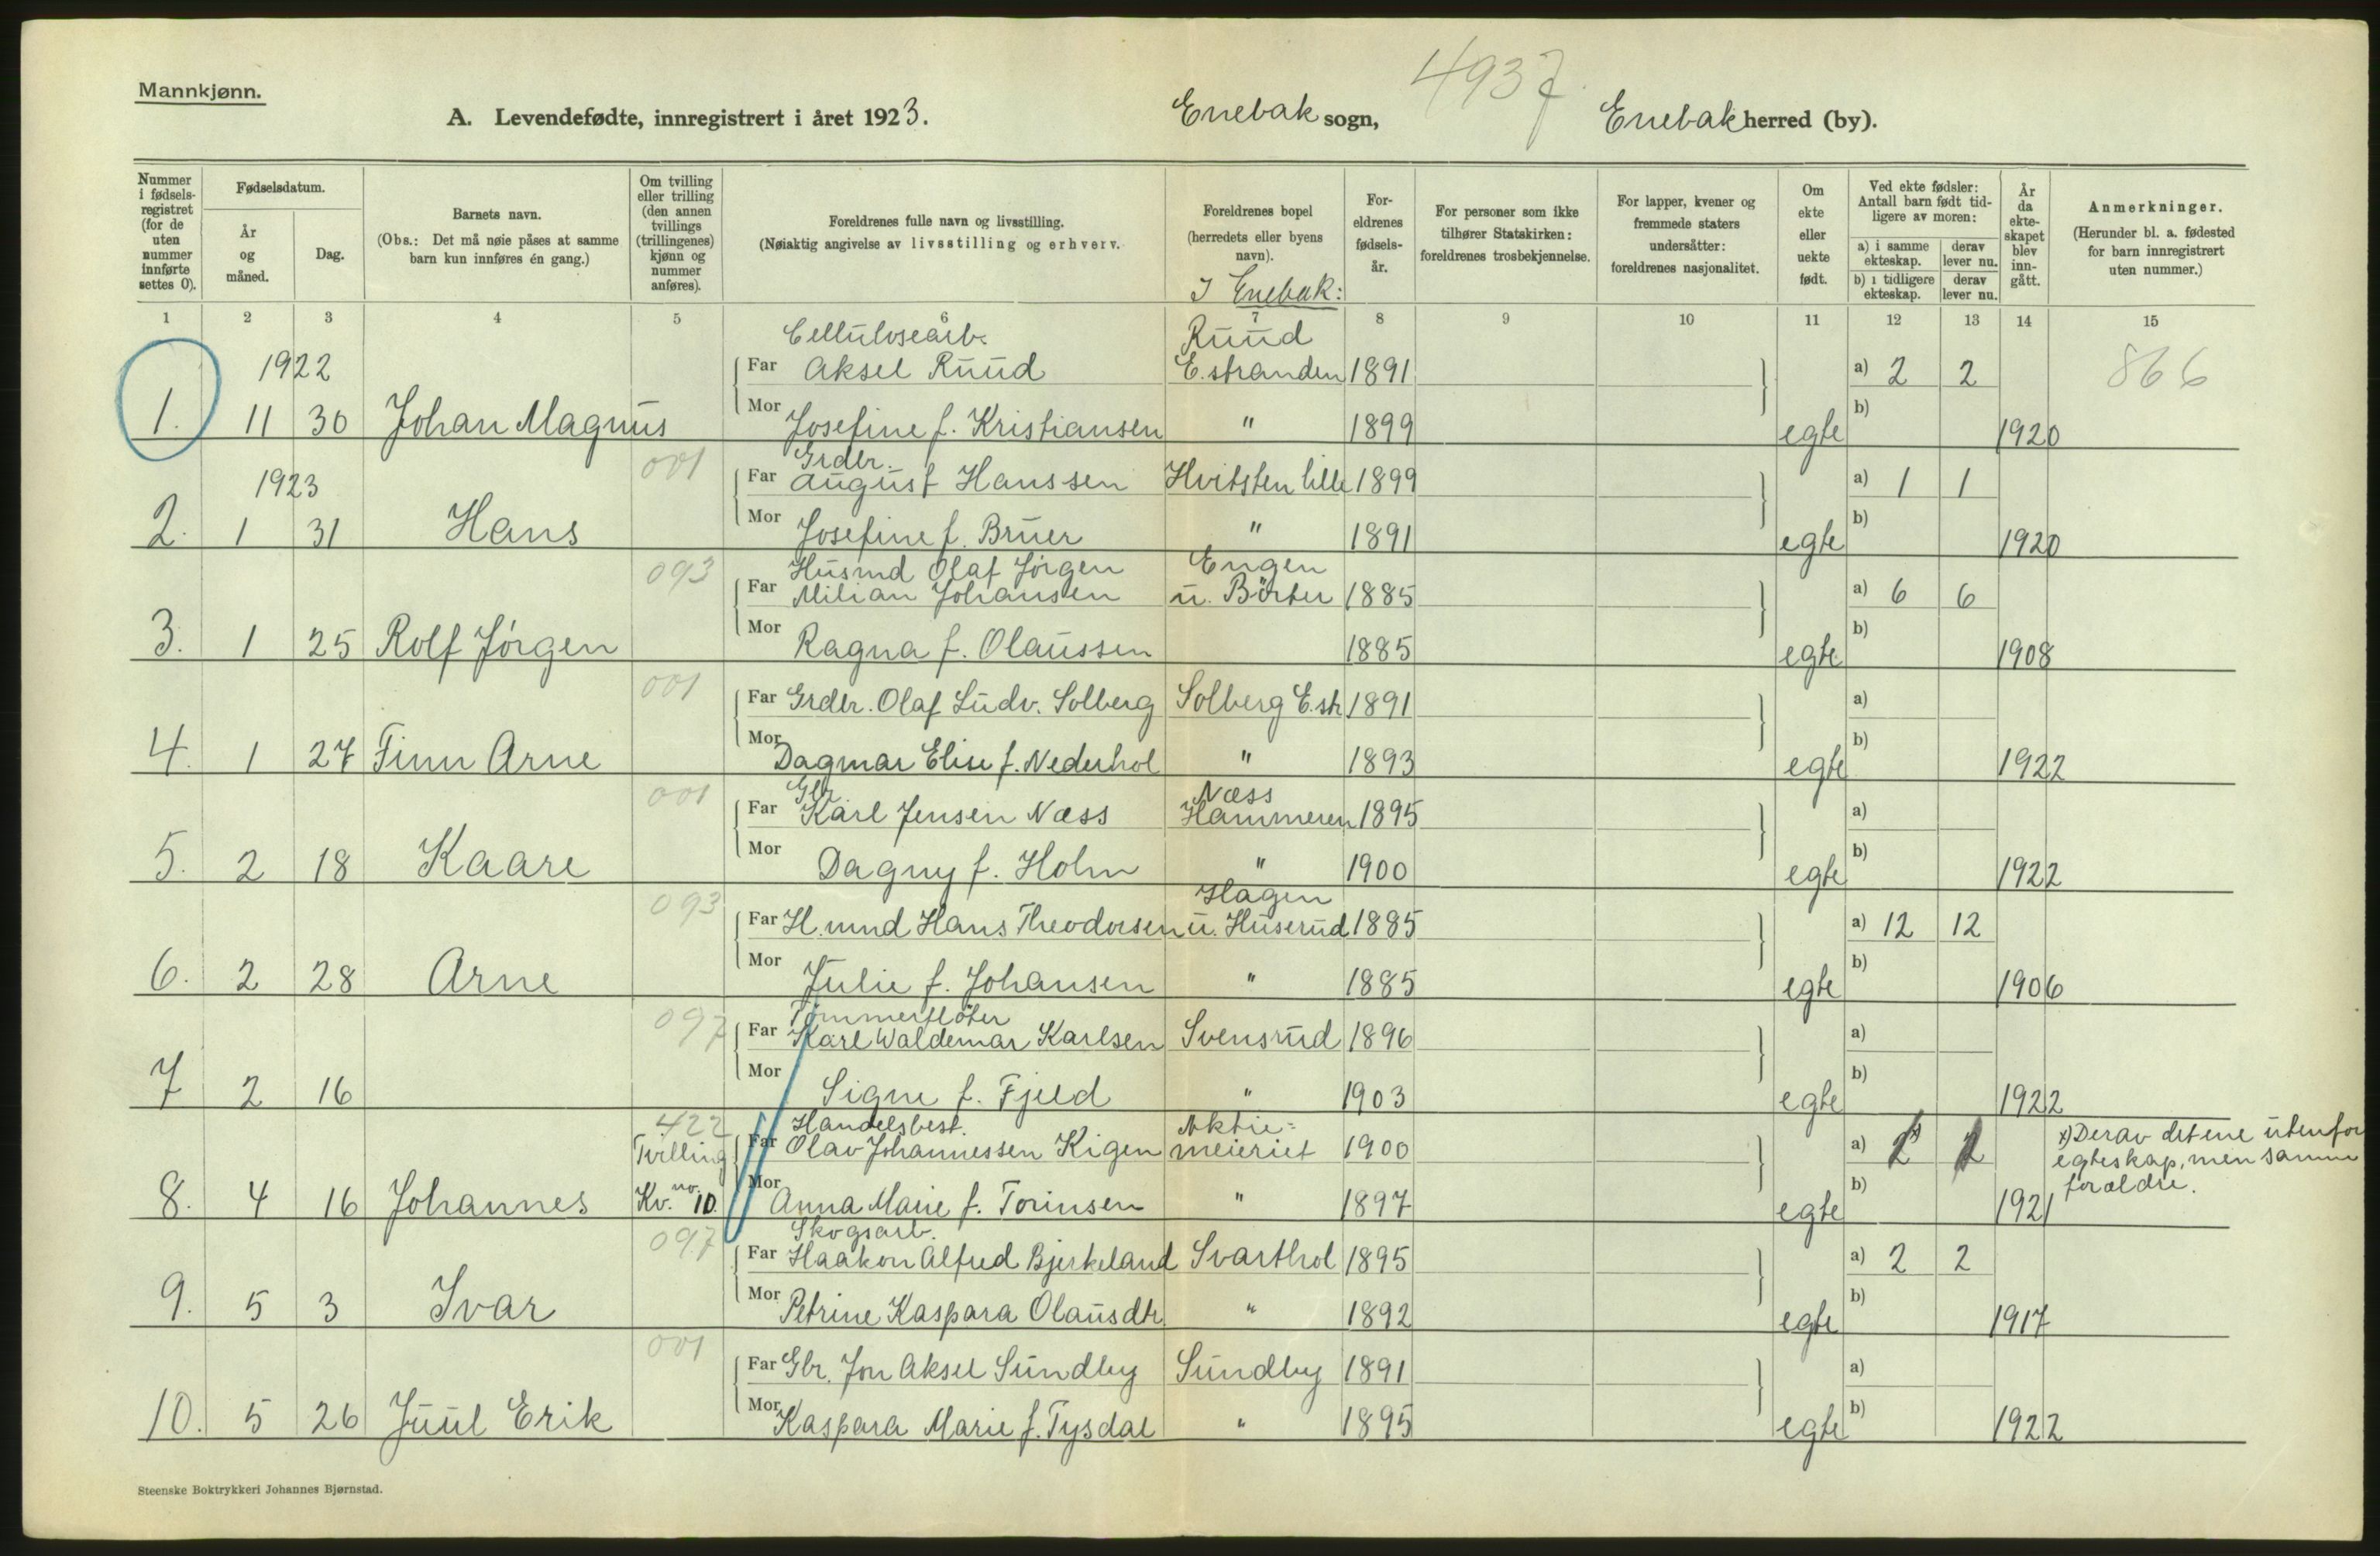 Mannkjønn.
4937
A. Levendefødte, innregistrert i året 1923. Enebak sogn, Enebak herred (by).
Nummer i fødsels-registret (for de uten nummer innførte settes 0).
Fødselsdatum.
År og måned.
Dag.
Barnets navn.
(Obs.: Det må nøie påses at samme barn kun innføres én gang.)
Om tvilling eller trilling (den annen tvillings (trillingenes) kjønn og nummer anføres).
Foreldrenes fulle navn og livsstilling.
(Nøiaktig angivelse av livsstilling og erhverv.
Foreldrenes bopel (herredets eller byens navn).
I Enebak:
For-eldrenes fødsels-år.
For personer som ikke tilhører Statskirken: foreldrenes trosbekjennelse.
For lapper, kvener og fremmede staters undersåtter: foreldrenes nasjonalitet.
Om ekte eller uekte født.
Ved ekte fødsler: Antall barn født tid-ligere av moren:
a) i samme ekteskap. derav lever nu.
b) i tidligere ekteskap. derav lever nu.
År da ekte-skapet blev inn-gått.
Anmerkninger.
(Herunder bl. a. fødested for barn innregistrert uten nummer.)
1 2 3 4 5 6 7 8 9 10 11 12 13 14 15
Cellulosearb. Ruud
1922 Far Aksel Ruud E. stranden 1891 a) 2 2 866
1. 11 30 Johan Magnus Mor Josefine f. Kristiansen " 1899 egte b) 1920
001 Grdbr.
1923 Far August Hanssen Hvitsten lille 1899 a) 1 1
2. 1 31 Hans Mor Josefine f. Bruer " 1891 egte b) 1920
093 Husmd Olaf Jörgen Engen
Far Milian Johansen u. Börter 1885 a) 6 6
3. 1 25 Rolf Jörgen Mor Ragna f. Olaussen 1885 egte b) 1908
001 Far Grdbr. Olaf Ludv. Solberg Solberg E.str 1891 a)
4. 1 27 Finn Arne Mor Dagmar Elise f. Nederhol " 1893 egte b) 1922
001 Gbr. Næss
Far Karl Jensen Næss Hammeren 1895 a)
5. 2 18 Kaare Mor Dagny f. Holm " 1900 egte b) 1922
093 Hagen
Far H.mnd Hans Theodorsen u. Huserud 1885 a) 12 12
6. 2 28 Arne Mor Julie f. Johansen " 1885 egte b) 1906
097 Tömmerflöter
Far Karl Waldemar Karlsen Svensrud 1896 a)
7 2 16 Mor Signe f. Fjeld " 1903 egte b) 1922
422 Handelsbest. Aktie=
Tvilling Far Olav Johannessen Kigen meieriet 1900 a) x) Derav det ene utenfor
egteskap, men samme
8. 4 16 Johannes Kv. no. 10. Mor Anna Marie f. Torinsen " 1897 egte b) 1921 forældre.
097 Skogsarb.
Far Haakon Alfred Bjerkeland Svarthol 1895 a) 2 2
9. 5 3 Ivar Mor Petrine Kaspara Olausdtr. " 1892 egte b) 1917
001 Far Gbr. Jon Aksel Sundby Sundby 1891 a)
10. 5 26 Juul Erik Mor Kaspara Marie f. Tysdal " 1895 egte b) 1922
Steenske Boktrykkeri Johannes Bjørnstad.